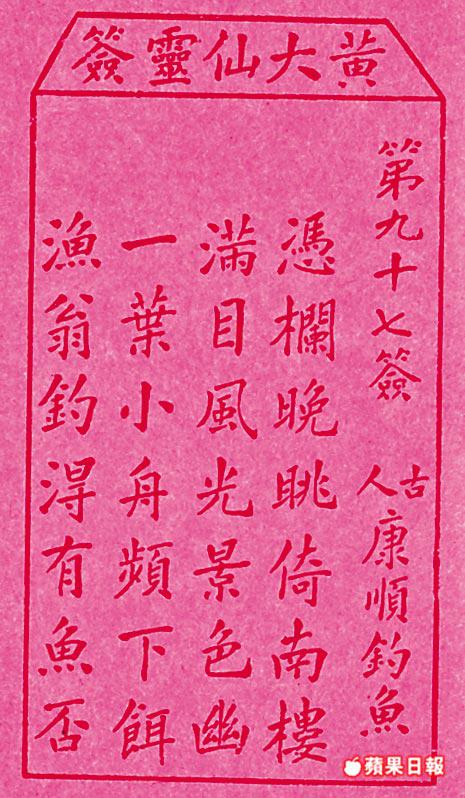 黃大仙靈簽
第九十七簽 古人 康順釣魚
憑欄晚眺倚南樓
滿目風光景色幽
一葉小舟頻下餌
漁翁釣淂有魚否
蘋果日報